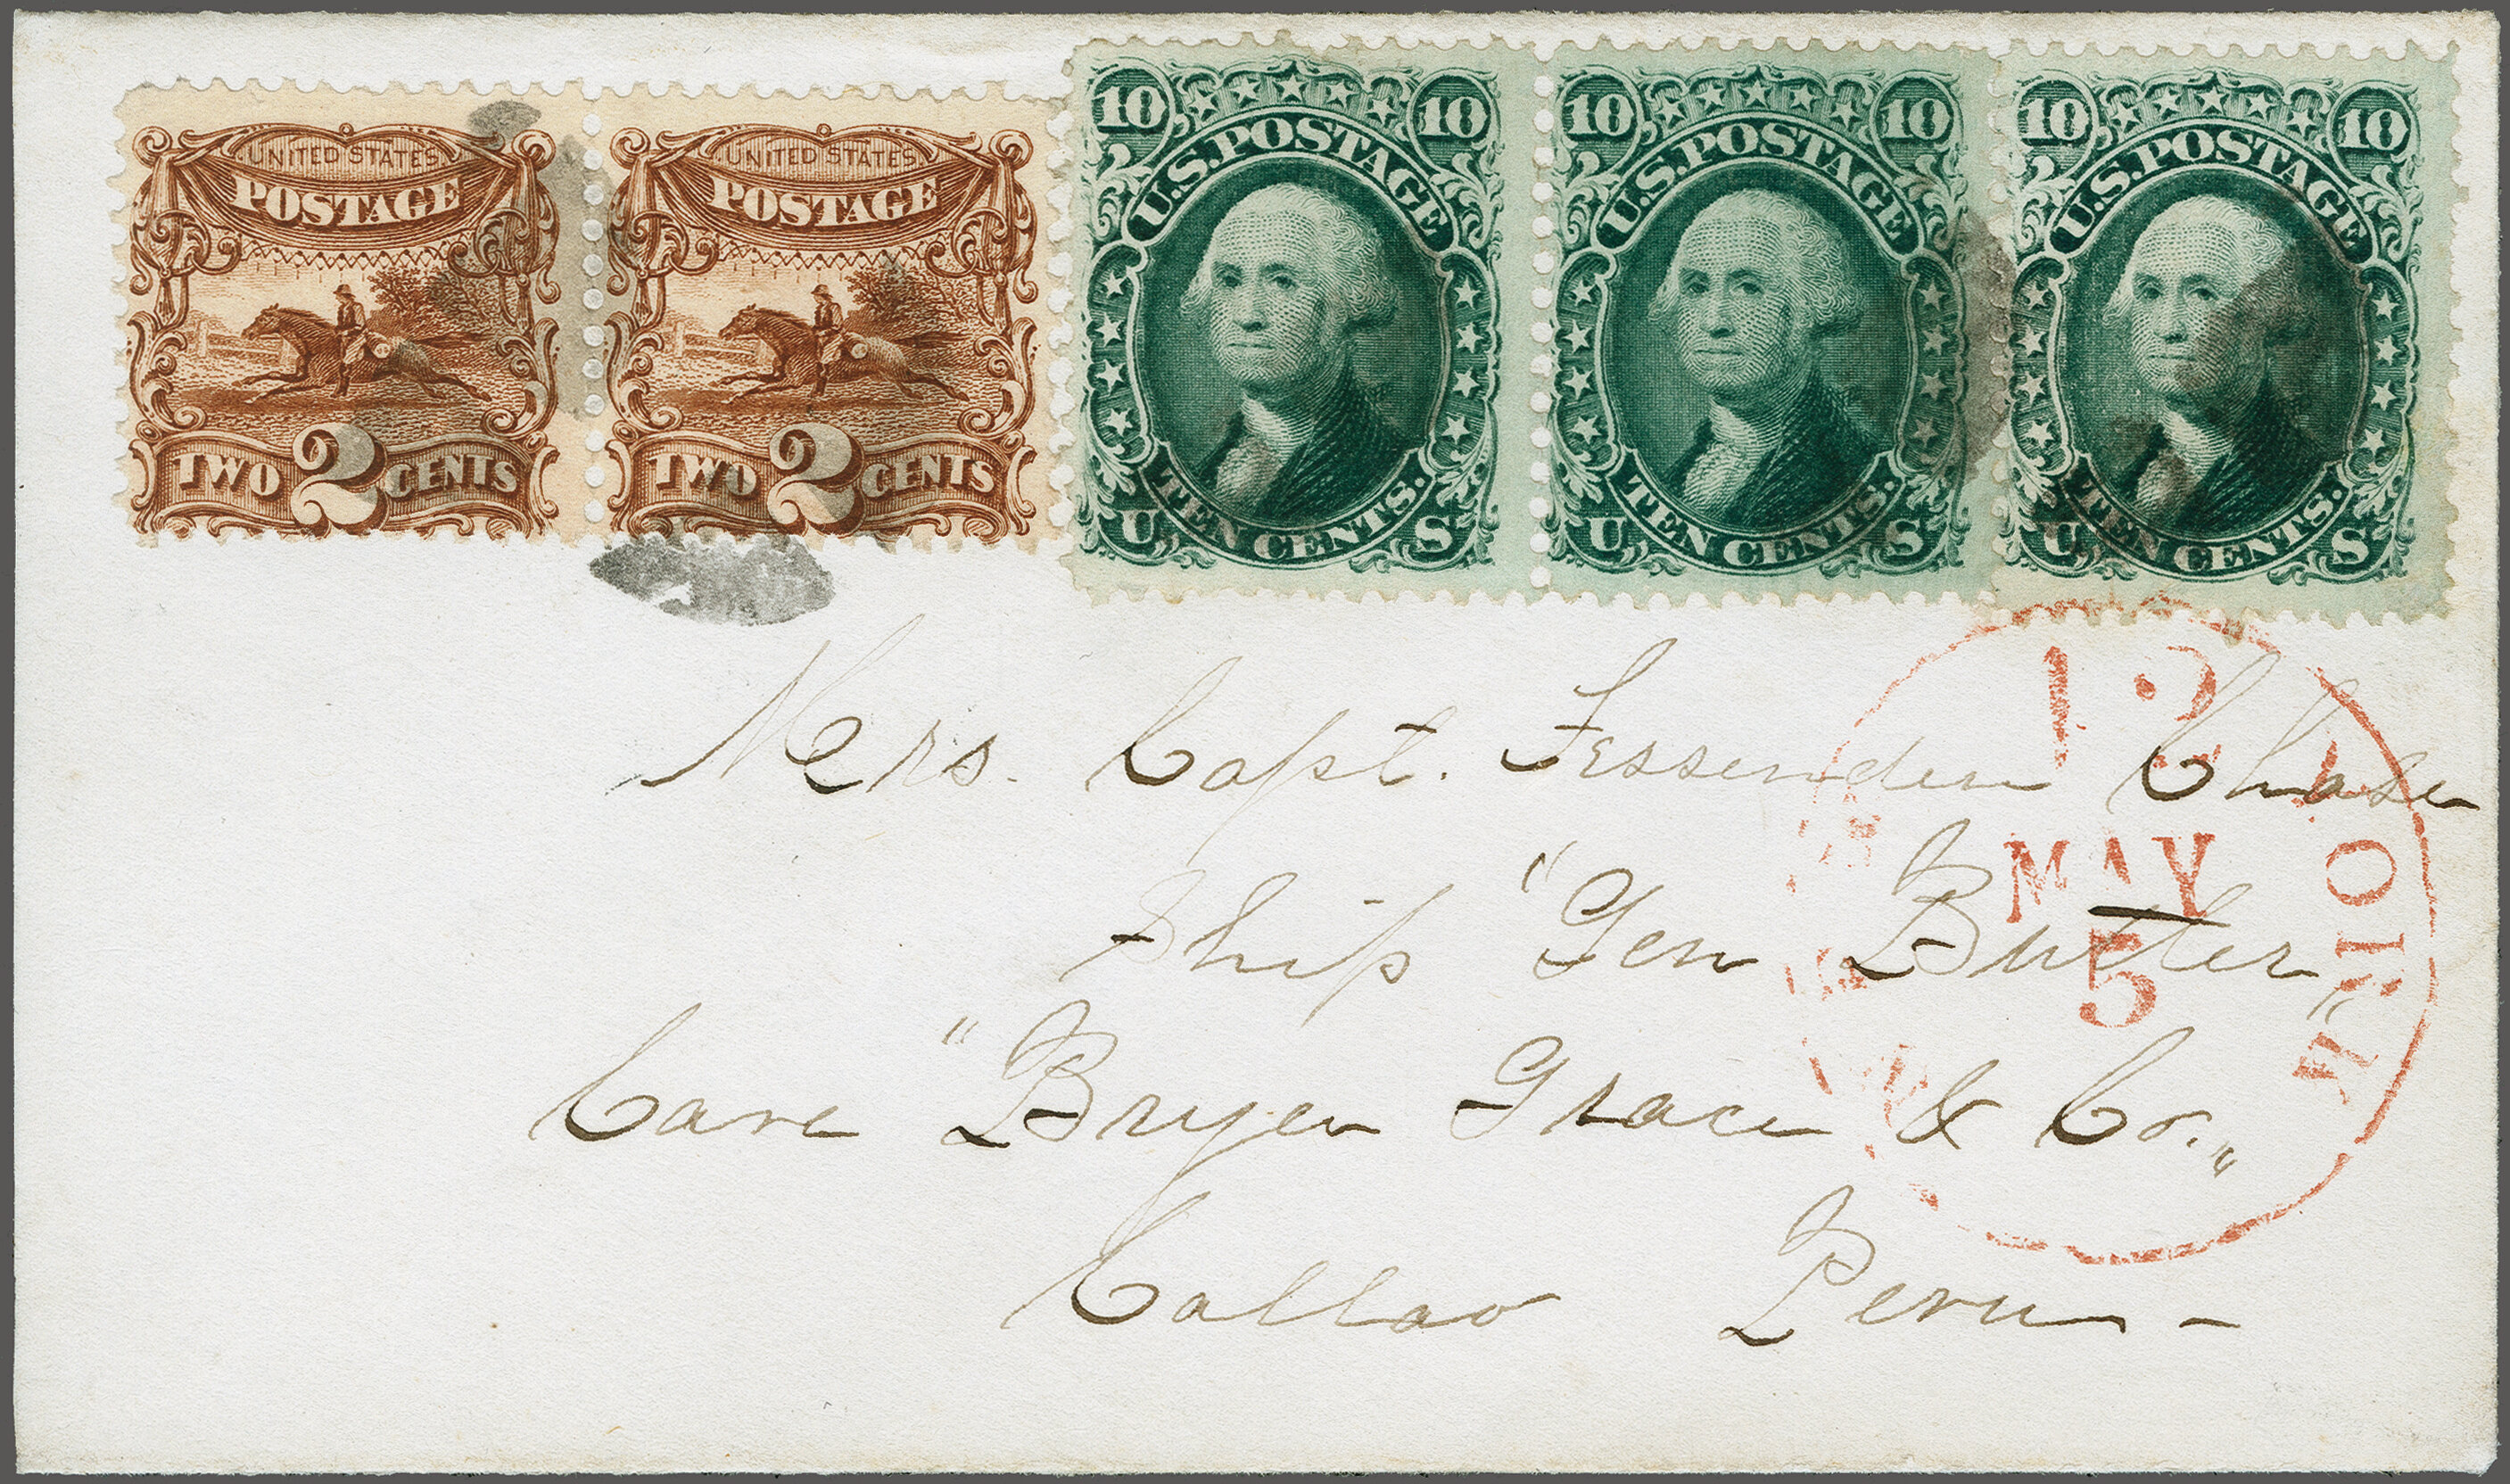 UNITED STATES
POSTAGE
TWO 2 CENTS
UNITED STATES
POSTAGE
TWO 2 CENTS
10 10
U.S. POSTAGE
TEN CENTS.
U S
10 10
U.S. POSTAGE
TEN CENTS.
U S
10 10
U.S. POSTAGE
TEN CENTS.
U S
Mrs. Capt. Fessenden Chase
Ship "Gen Butler"
Care "Bryce Grace & Co."
Callao Peru -
12
MAY
5
YORK